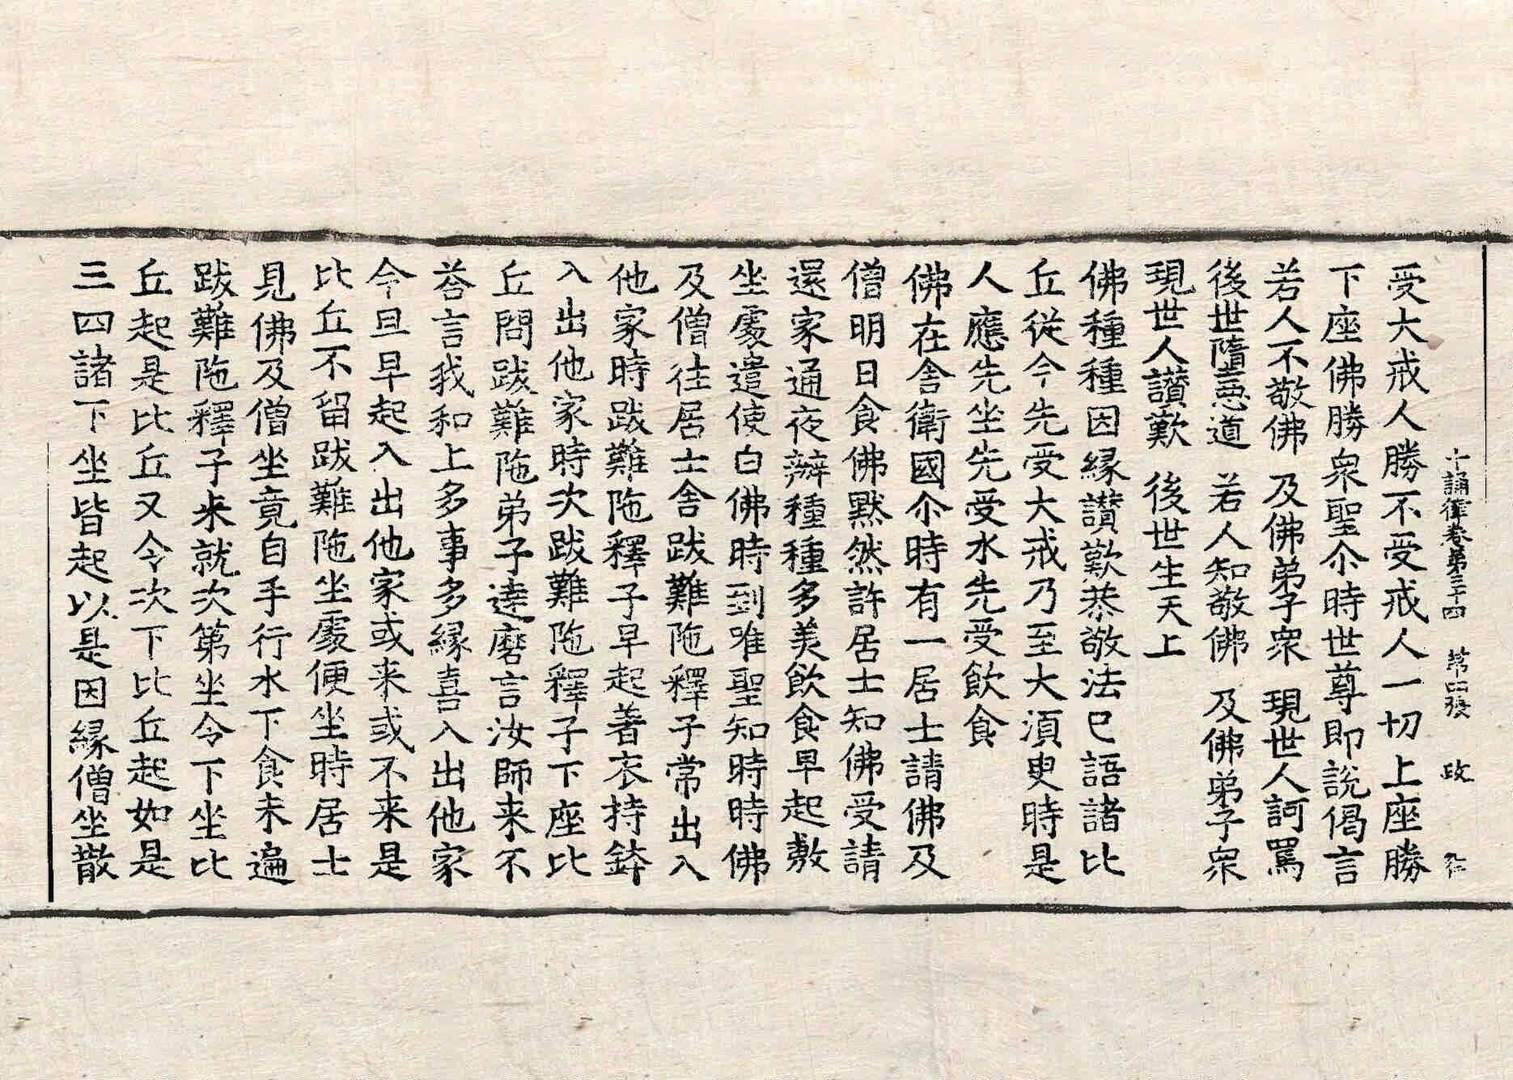 十誦律卷第三十四 第四張 政
受大戒人勝不受戒人一切上座勝
下座佛勝衆聖尒時世尊即說偈言
若人不敬佛 及佛弟子衆 現世人訶罵
後世墮惡道 若人知敬佛 及佛弟子衆
現世人讃歎 後世生天上
佛種種因縁讃歎恭敬法已語諸比
丘從今先受大戒乃至大湏臾時是
人應先坐先受水先受飲食
佛在舍衛國尒時有一居士請佛及
僧明日食佛黙然許居士知佛受請
還家通夜辦種種多美飲食早起敷
坐處遣使白佛時到唯聖知時時佛
及僧往居士舍跋難陁釋子常出入
他家時跋難陁釋子早起著衣持鉢
入出他家時次跋難陁釋子下座比
丘問跋難陁弟子達磨言汝師来不
荅言我和上多事多縁喜入出他家
今旦早起入出他家或来或不来是
比丘不留跋難陁坐處便坐時居士
見佛及僧坐竟自手行水下食未遍
跋難陁釋子来就次第坐令下坐比
丘起是比丘又令次下比丘起如是
三四諸下坐皆起以是因縁僧坐散